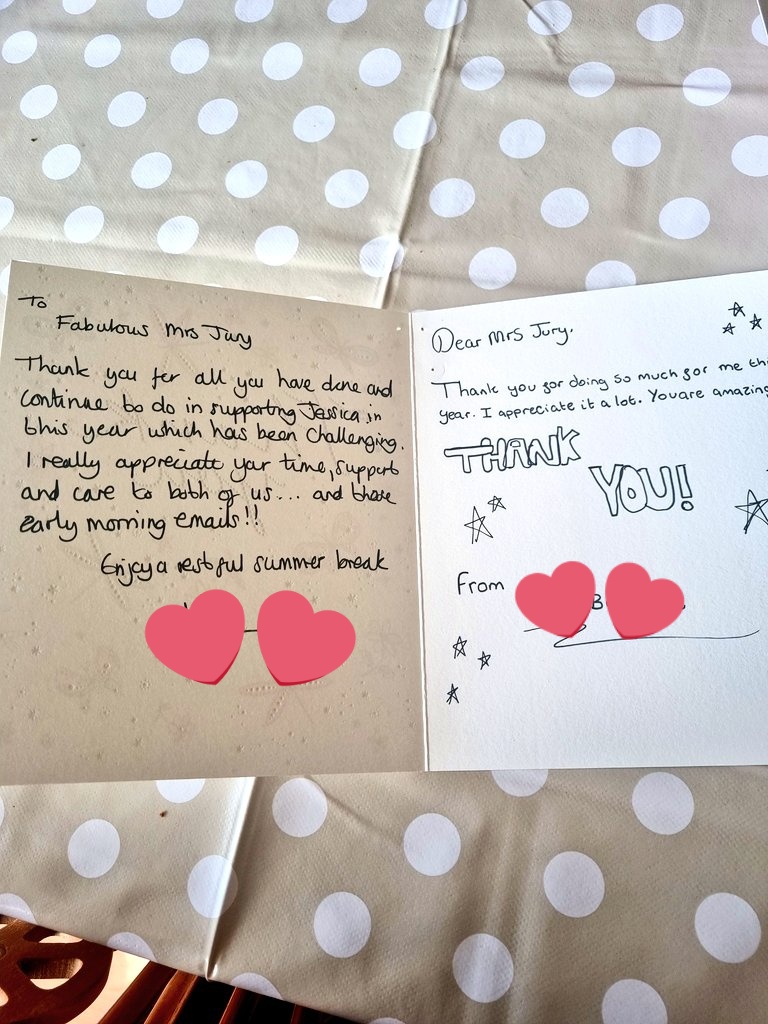 To
Fabulous Mrs Jury
Thank you for all you have done and
continue to do in supporting Jessica in
this year which has been challenging.
I really appreciate your time, support
and care to both of us... and those
early morning emails!!
Enjoy a restful summer break
Dear Mrs Jury,
Thank you for doing so much for me this
year. I appreciate it a lot. You are amazing
THANK
YOU!
From
B